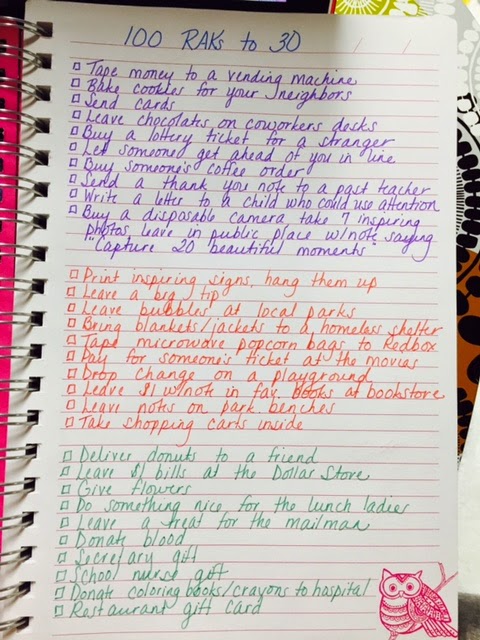 100 RAKs to 30
Tape money to a vending machine
Bake cookies for your neighbors
Send cards
Leave chocolates on coworkers desks
Buy a lottery ticket for a stranger
Let someone get ahead of you in line
Buy someone's coffee order
Send a thank you note to a past teacher
Write a letter to a child who could use attention
Buy a disposable camera take 7 inspiring
photos, leave in public place w/note saying
"Capture 20 beautiful moments"
Print inspiring signs, hang them up
Leave a big tip
Leave bubbles at local parks
Bring blankets/jackets to a homeless shelter
Tape microwave popcorn bags to Redbox
Pay for someone's ticket at the movies
Drop change on a playground
Leave $1 w/note in fav. books at bookstore
Leave notes on park benches
Take shopping carts inside
Deliver donuts to a friend
Leave $1 bills at the Dollar Store
Give flowers
Do something nice for the lunch ladies
Leave a treat for the mailman
Donate blood
Secretary gift
School nurse gift
Donate coloring books/crayons to hospital
Restaurant gift card